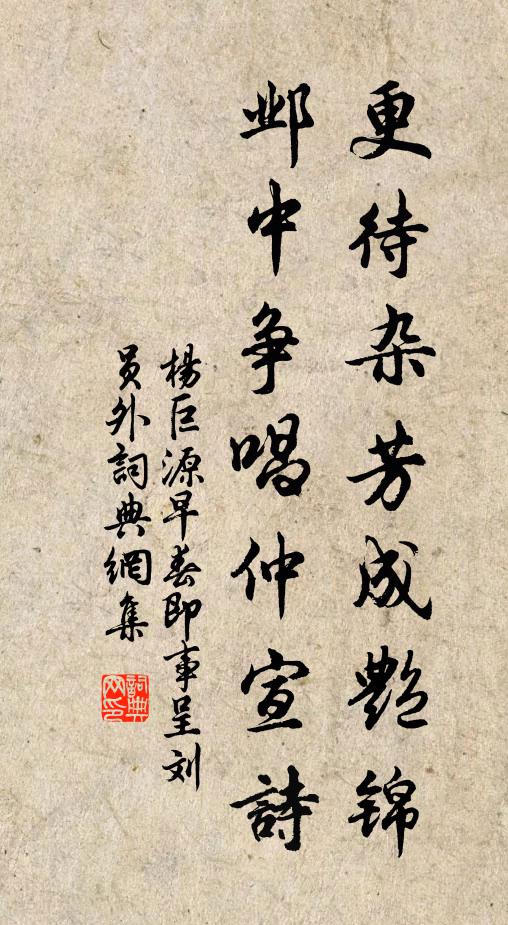 更待杂芳成艷锦
邺中争唱仲宣詩
楊巨源早春即事呈刘
员外詞典網集
詞典
网印